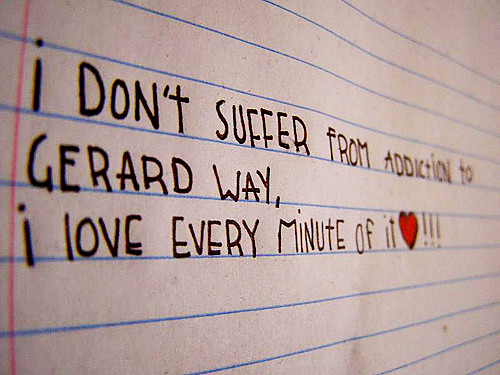 i DON't SUFFER fROM ADDiCtiON tO
GERARD WAY,
i lOVE EVERY MiNUtE OF it♥!!!